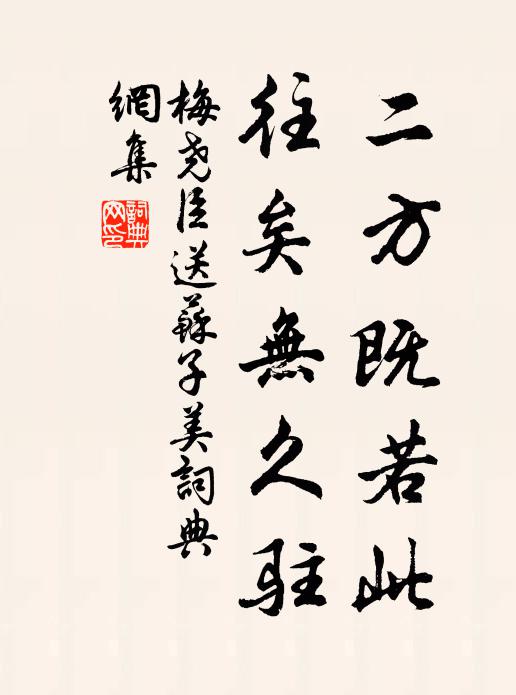 二方既若此
往矣無久驻
梅尧臣送蘇子美詞典
網集
詞典
网印